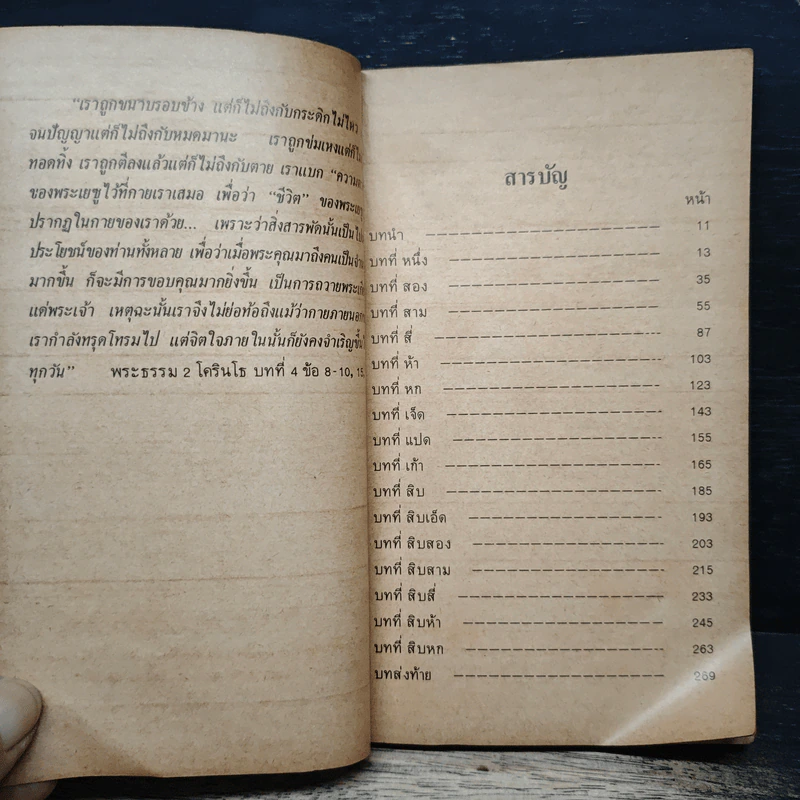 "เราถูกขนาบรอบข้าง แต่ก็ไม่ถึงกับกระดิกไม่ไหว
จนปัญญาแต่ก็ไม่ถึงกับหมดมานะ เราถูกข่มเหงแต่ก็ไม่
ทอดทิ้ง เราถูกตีลงแล้วแต่ก็ไม่ถึงกับตาย เราแบก "ความ
ของพระเยซูไว้ที่กายเราเสมอ เพื่อว่า "ชีวิต" ของพระเยซู
ปรากฏในกายของเราด้วย... เพราะว่าสิ่งสารพัดนั้นเป็นไป
ประโยชน์ของท่านทั้งหลาย เพื่อว่าเมื่อพระคุณมาถึงคนเป็น
มากขึ้น ก็จะมีการขอบคุณมากยิ่งขึ้น เป็นการถวาย
แด่พระเจ้า เหตุฉะนั้นเราจึงไม่ย่อท้อถึงแม้ว่ากายภายนอก
เรากำลังทรุดโทรมไป แต่จิตใจภายในนั้นก็ยังคงจำเริญขึ้น
ทุกวัน" พระธรรม 2 โครินโธ บทที่ 4 ข้อ 8-10, 15
สารบัญ
หน้า
บทนำ 11
บทที่ หนึ่ง 13
บทที่ สอง 35
บทที่ สาม 55
บทที่ สี่ 87
บทที่ ห้า 103
บทที่ หก 123
บทที่ เจ็ด 143
บทที่ แปด 155
บทที่ เก้า 165
บทที่ สิบ 185
บทที่ สิบเอ็ด 193
บทที่ สิบสอง 203
บทที่ สิบสาม 215
บทที่ สิบสี่ 233
บทที่ สิบห้า 245
บทที่ สิบหก 263
บทส่งท้าย 269